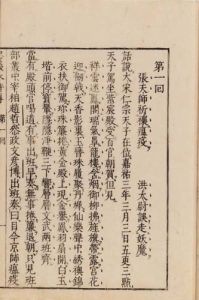 第一回
張天師祈禳瘟疫
洪太尉誤走妖魔
話說大宋仁宗天子在位嘉祐三年三月三日五更三點
天子駕坐紫宸殿受百官朝賀但見
祥雲迷鳳閣瑞氣罩龍樓含烟御柳拂旌旗帶露宮花
迎劍戟天香影裏玉簪珠履聚丹墀仙樂聲中繡襖錦
衣扶御駕珍珠簾捲黃金殿上現金輿鳳羽扇開白玉
堦前停寶輦隱隱淨鞭三下響層層文武兩班齊
當有殿頭官喝道有事出班早奏無事捲簾退朝只見班
部叢中宰相趙哲參政文彥博出班奏曰目今京師瘟疫